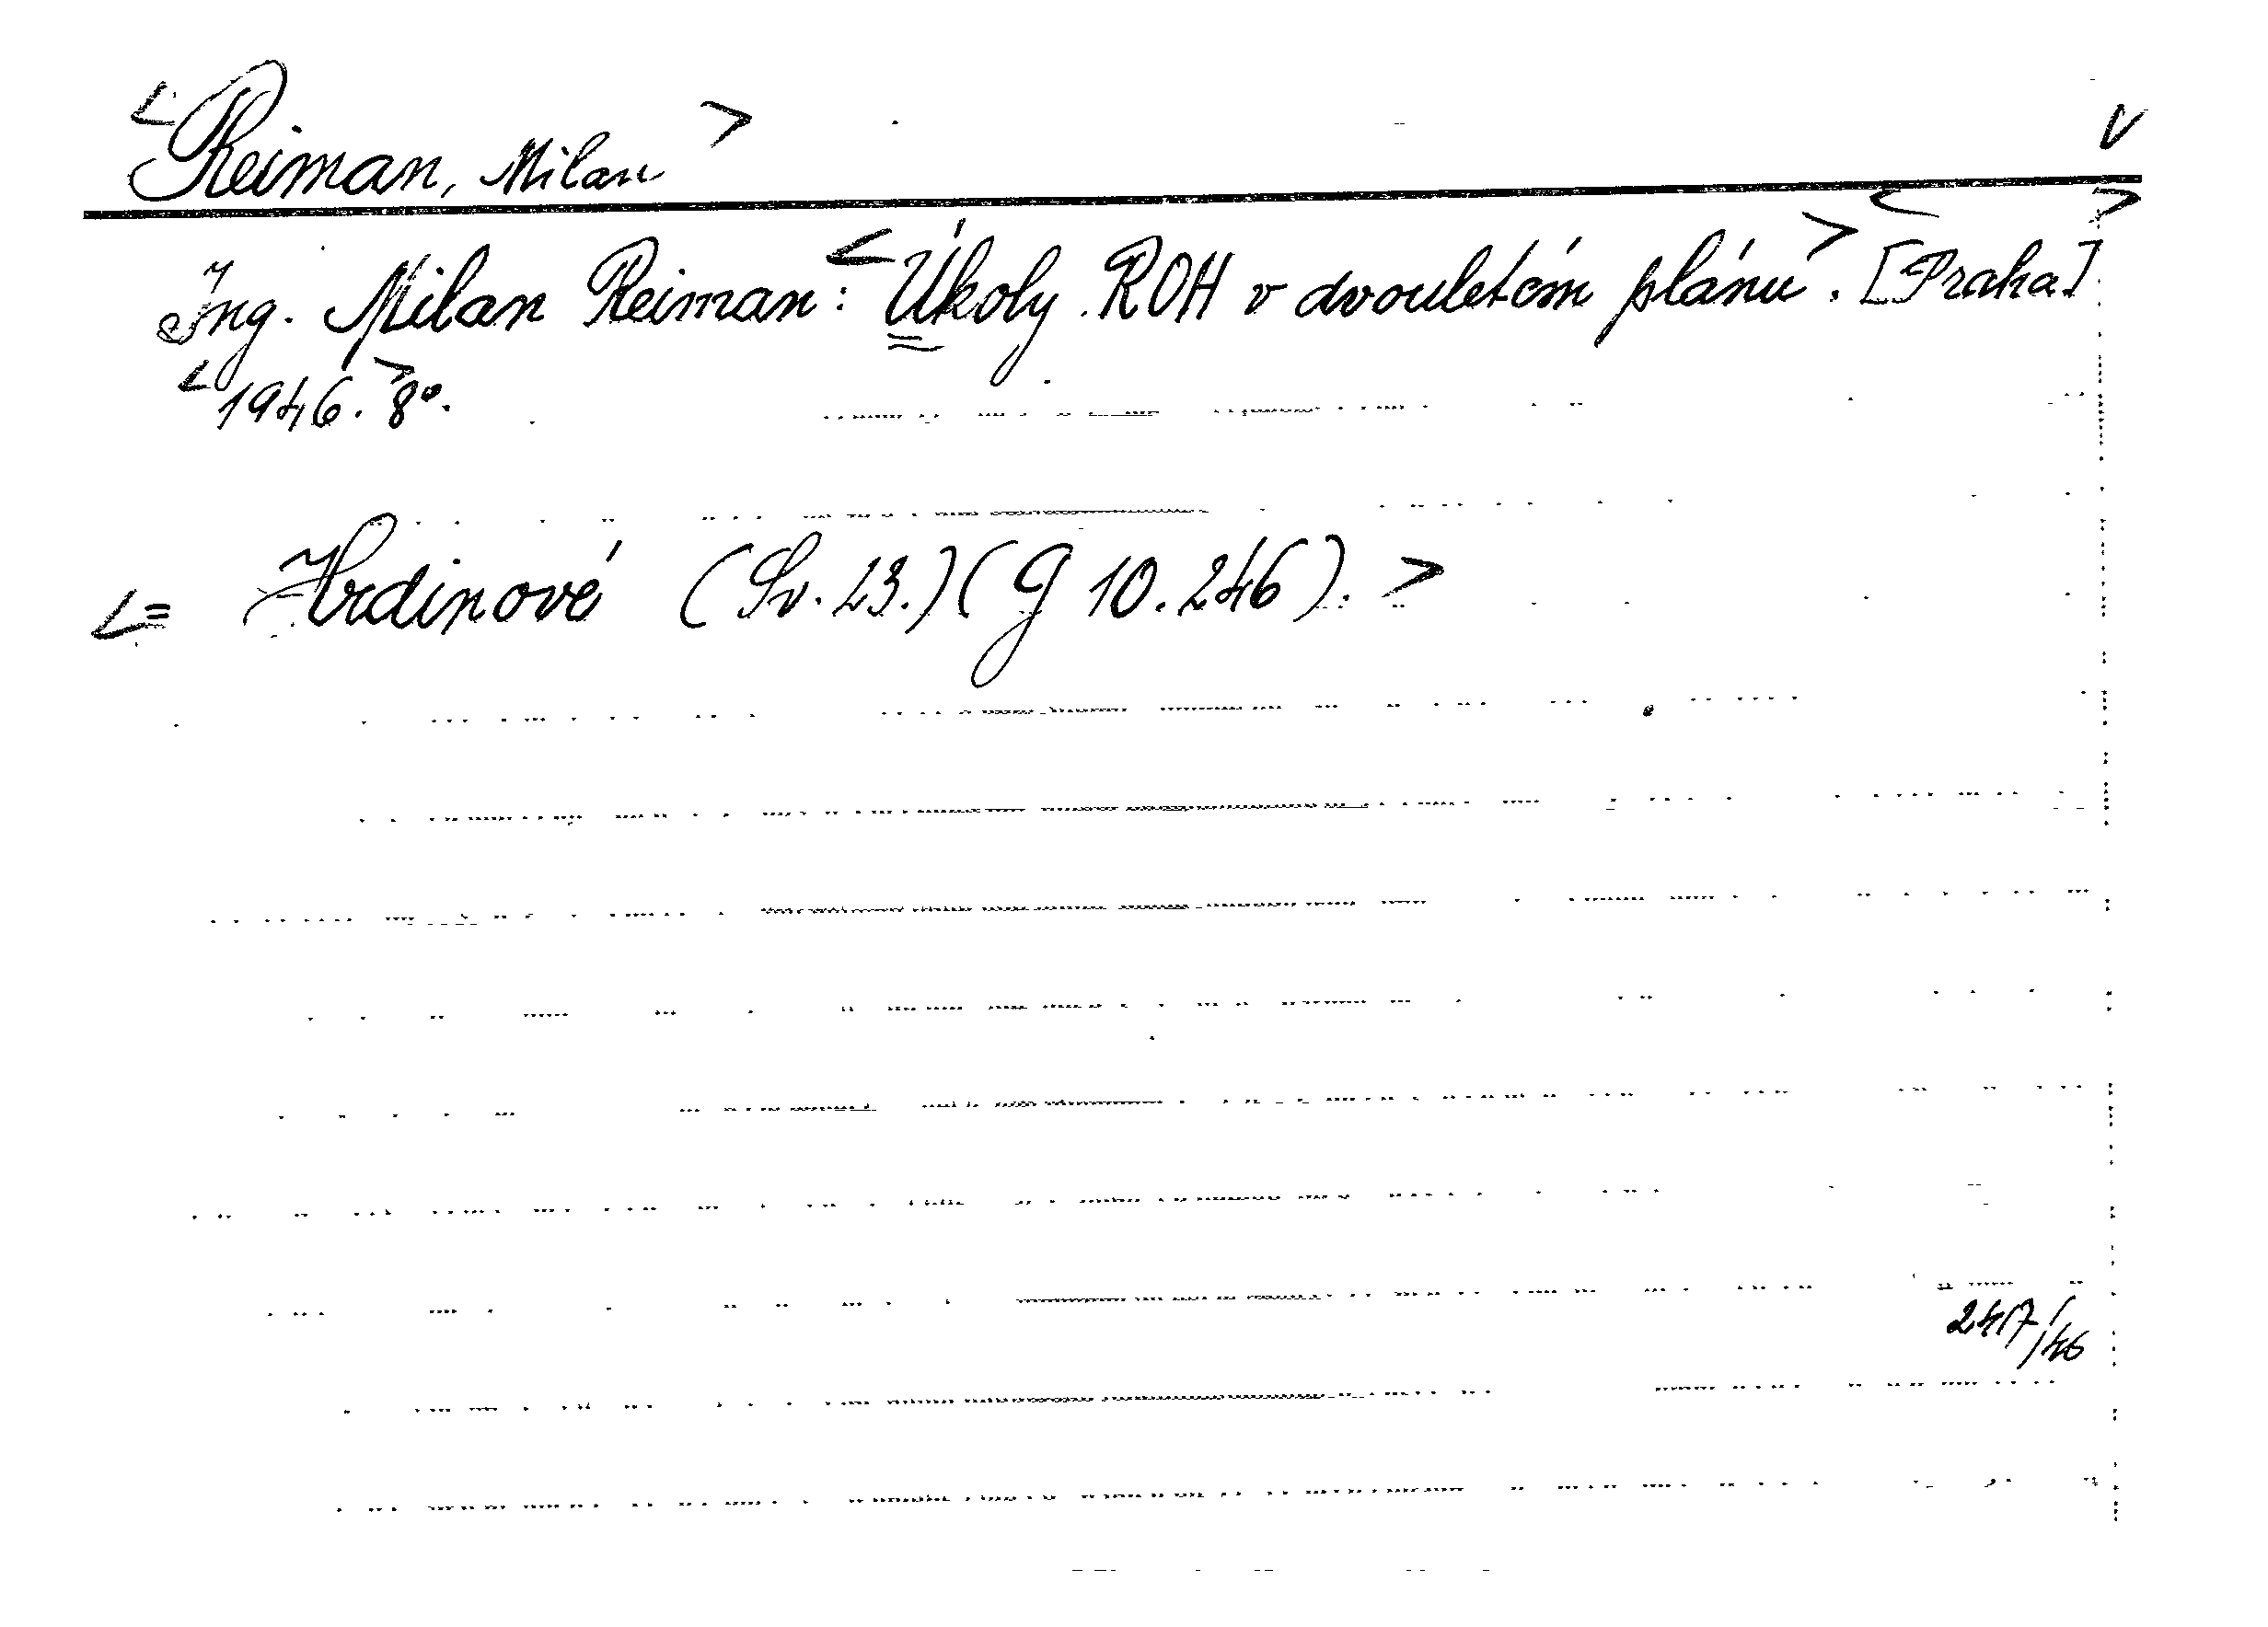 <Reiman, Milan> V
Ing. Milan Reiman: <Úkoly ROH v dvouletém plánu>. <[Praha]>
<1946.> 8°.
<= Hrdinové (Sv. 23.) (G 10.246). >
247/46